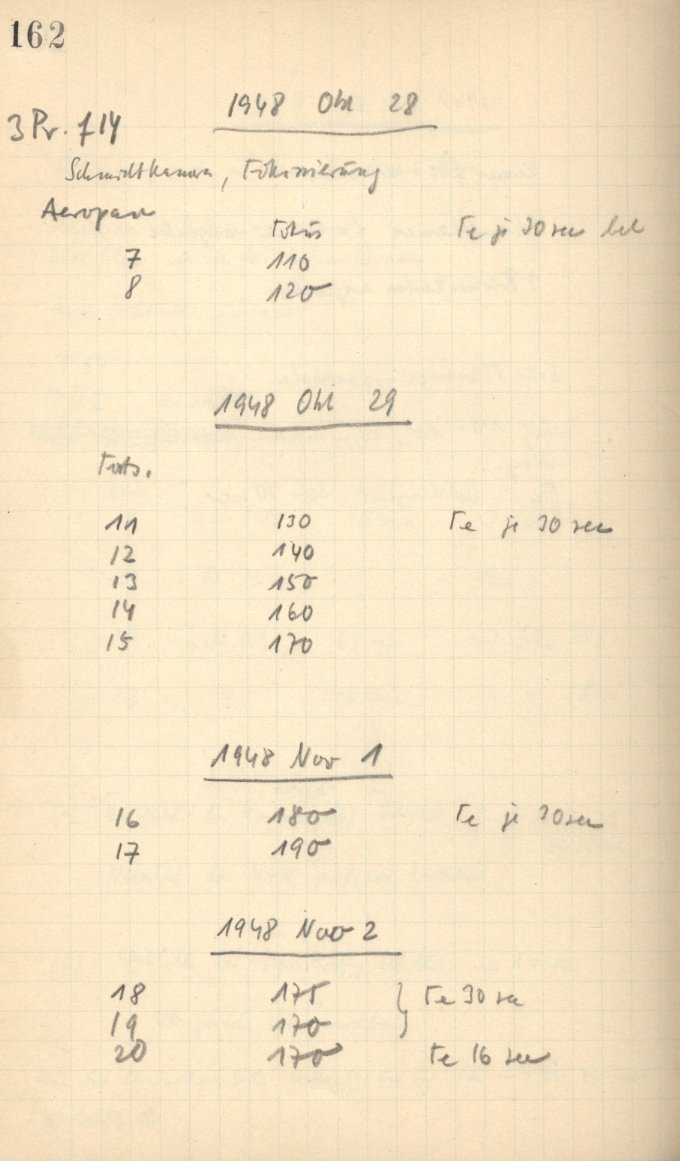 162
1948 Okt 28
3 Pr. f 14
Schmidtkamera, Fokussierung
Aeropan
Fokus Te je 30 sec bel
7 110
8 120
1948 Okt 29
Forts.
11 130 Te je 30 sec
12 140
13 150
14 160
15 170
1948 Nov 1
16 180 Te je 30 sec
17 190
1948 Nov 2
18 175 } Te 30 sec
19 170
20 170 Te 16 sec